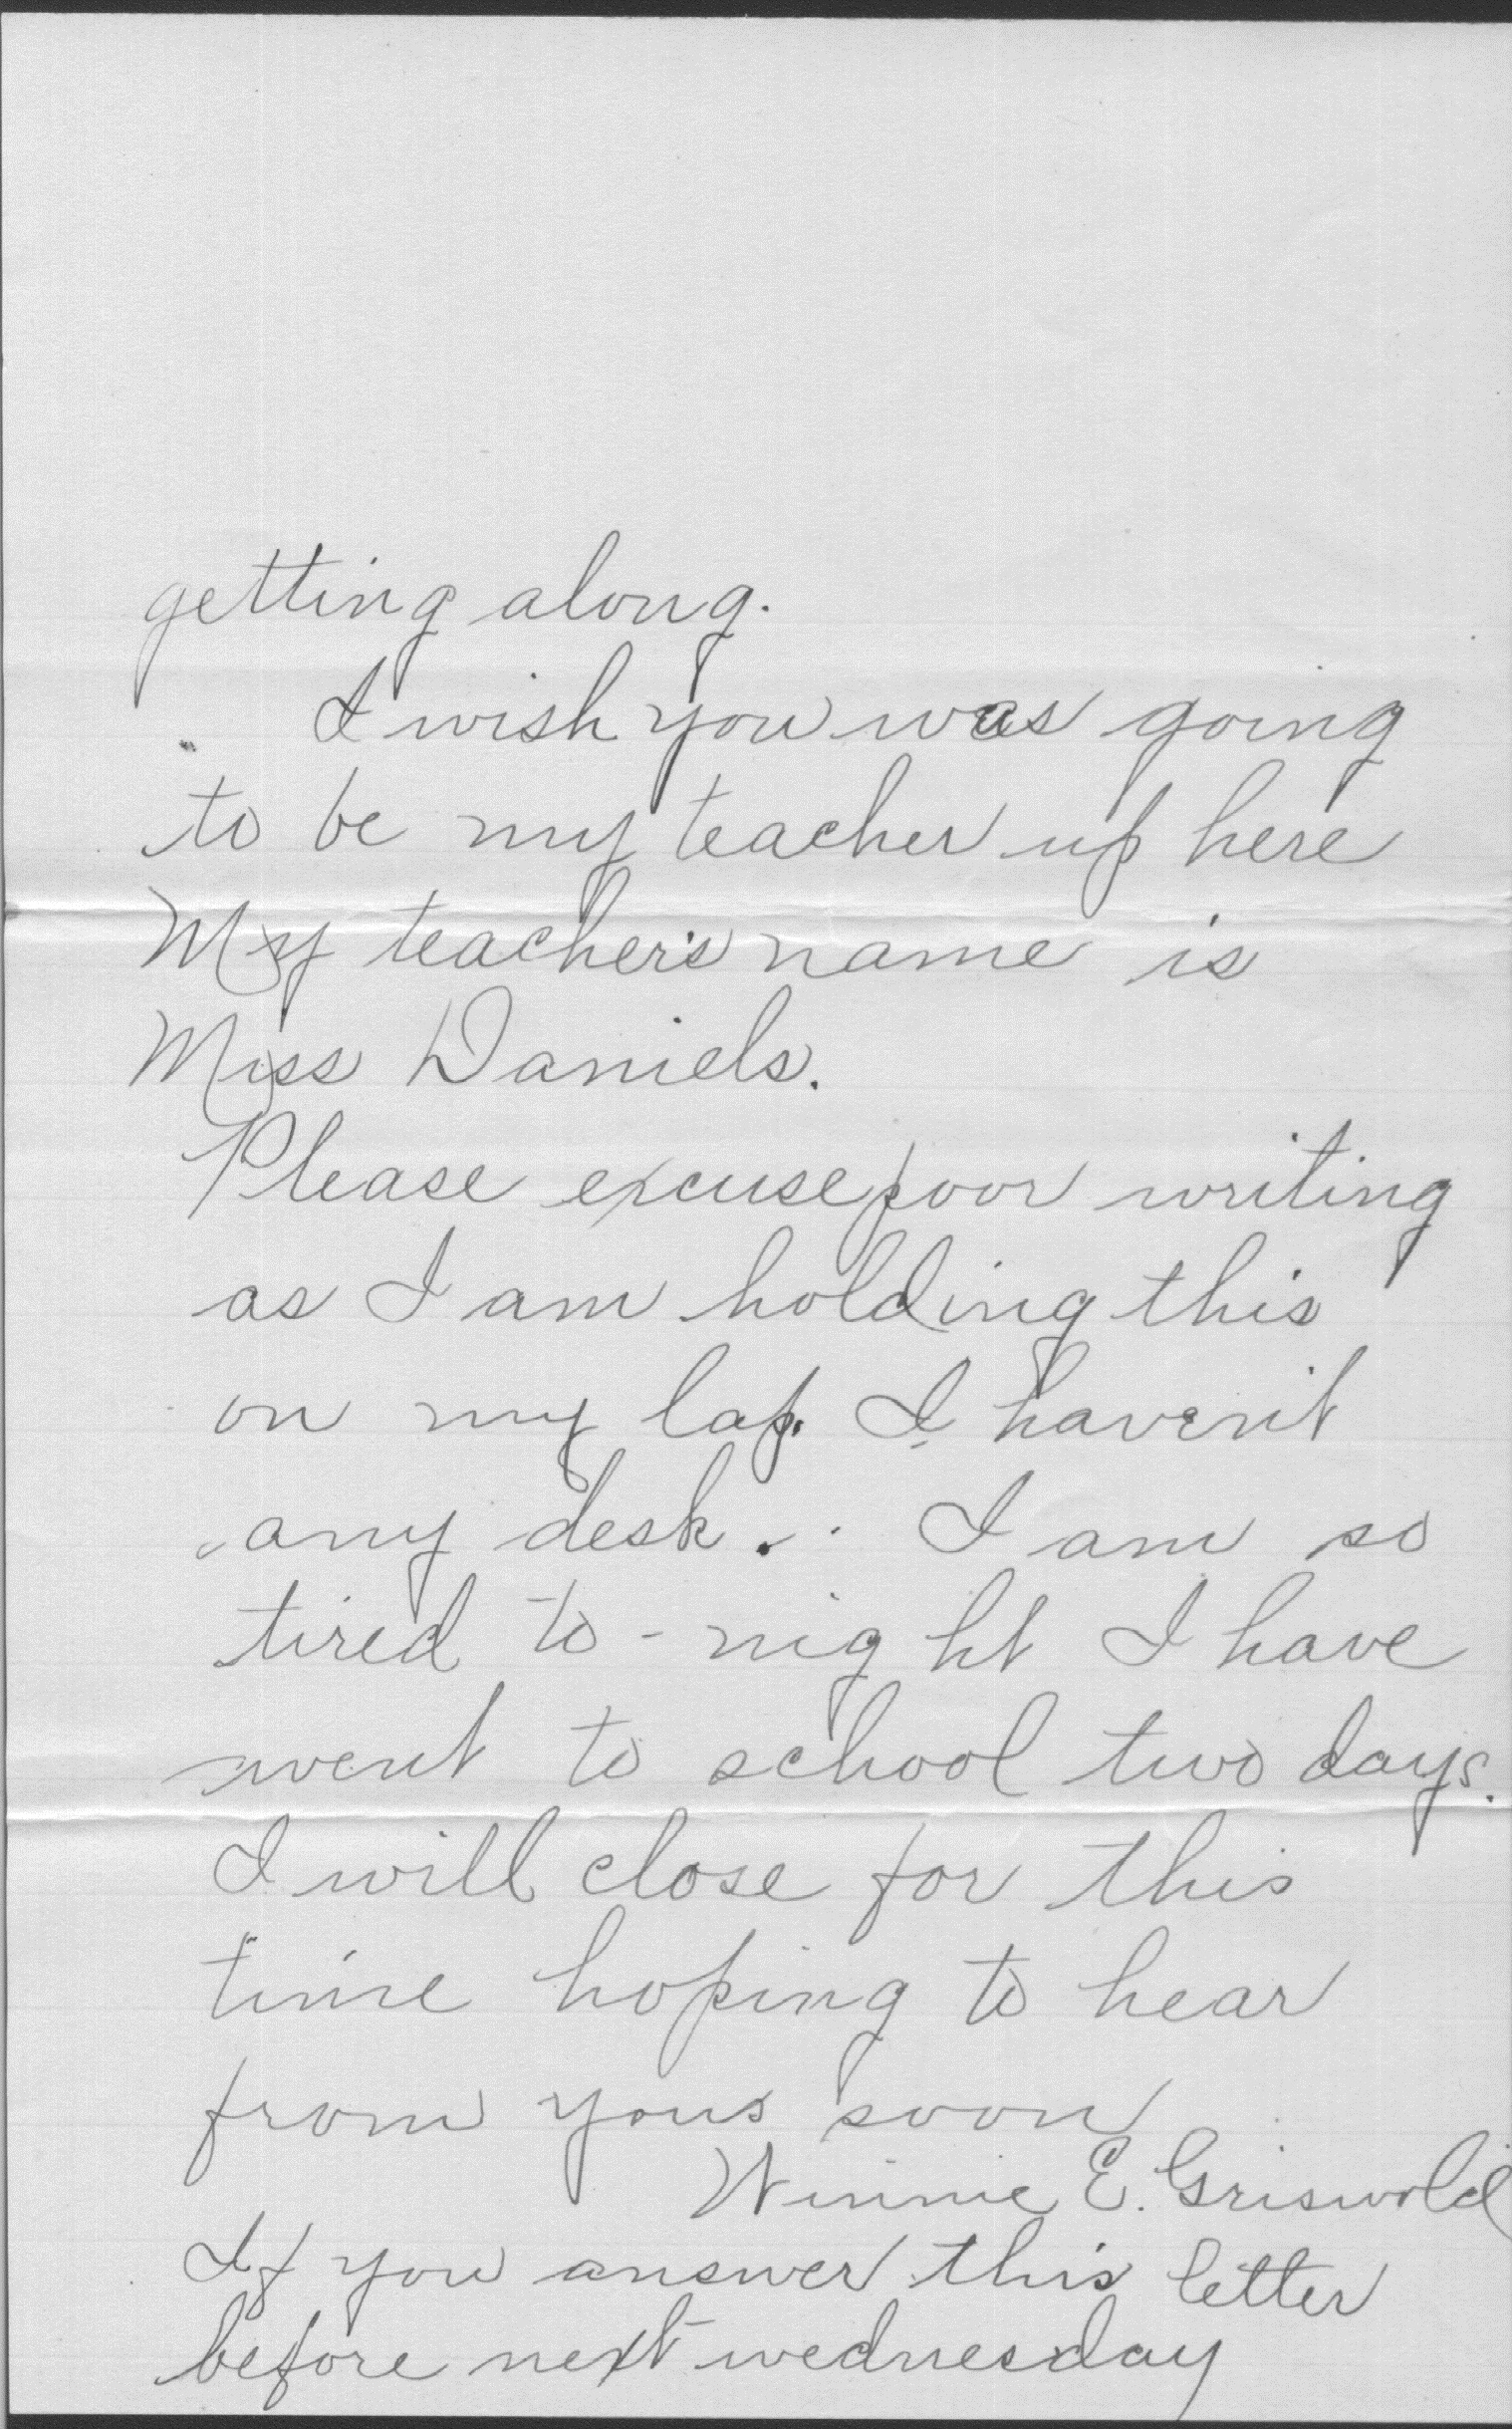 getting along.
I wish you was going
to be my teacher up here
My teacher's name is
Miss Daniels.
Please excuse poor writing
as I am holding this
on my lap. I haven't
any desk. I am so
tired to-night I have
went to school two days.
I will close for this
time hoping to hear
from yous soon
Winnie E. Griswold
If you answer this letter
before next wednesday